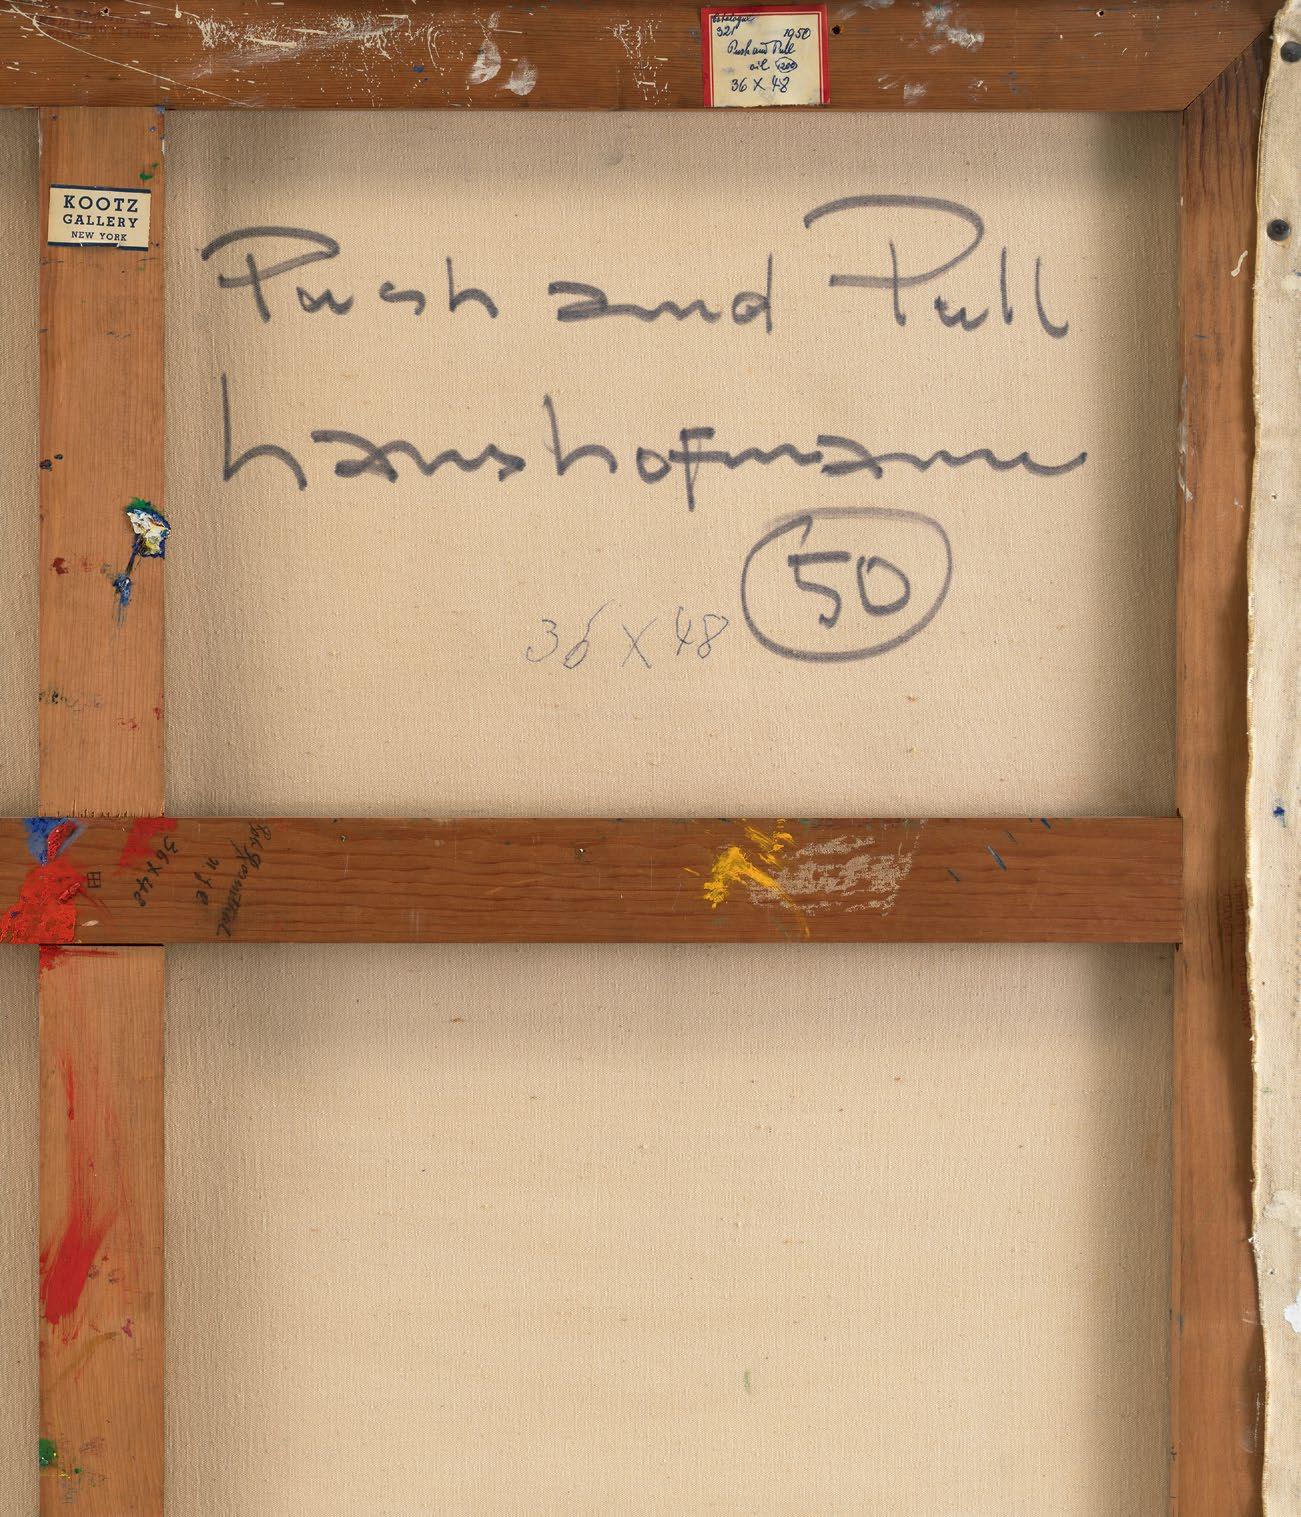 Catalogue
321 1950
Push and Pull
oil 1200
36 X 48
KOOTZ
GALLERY
NEW YORK
Push and Pull
hans hofmann
50
36 X 48
36 x 48